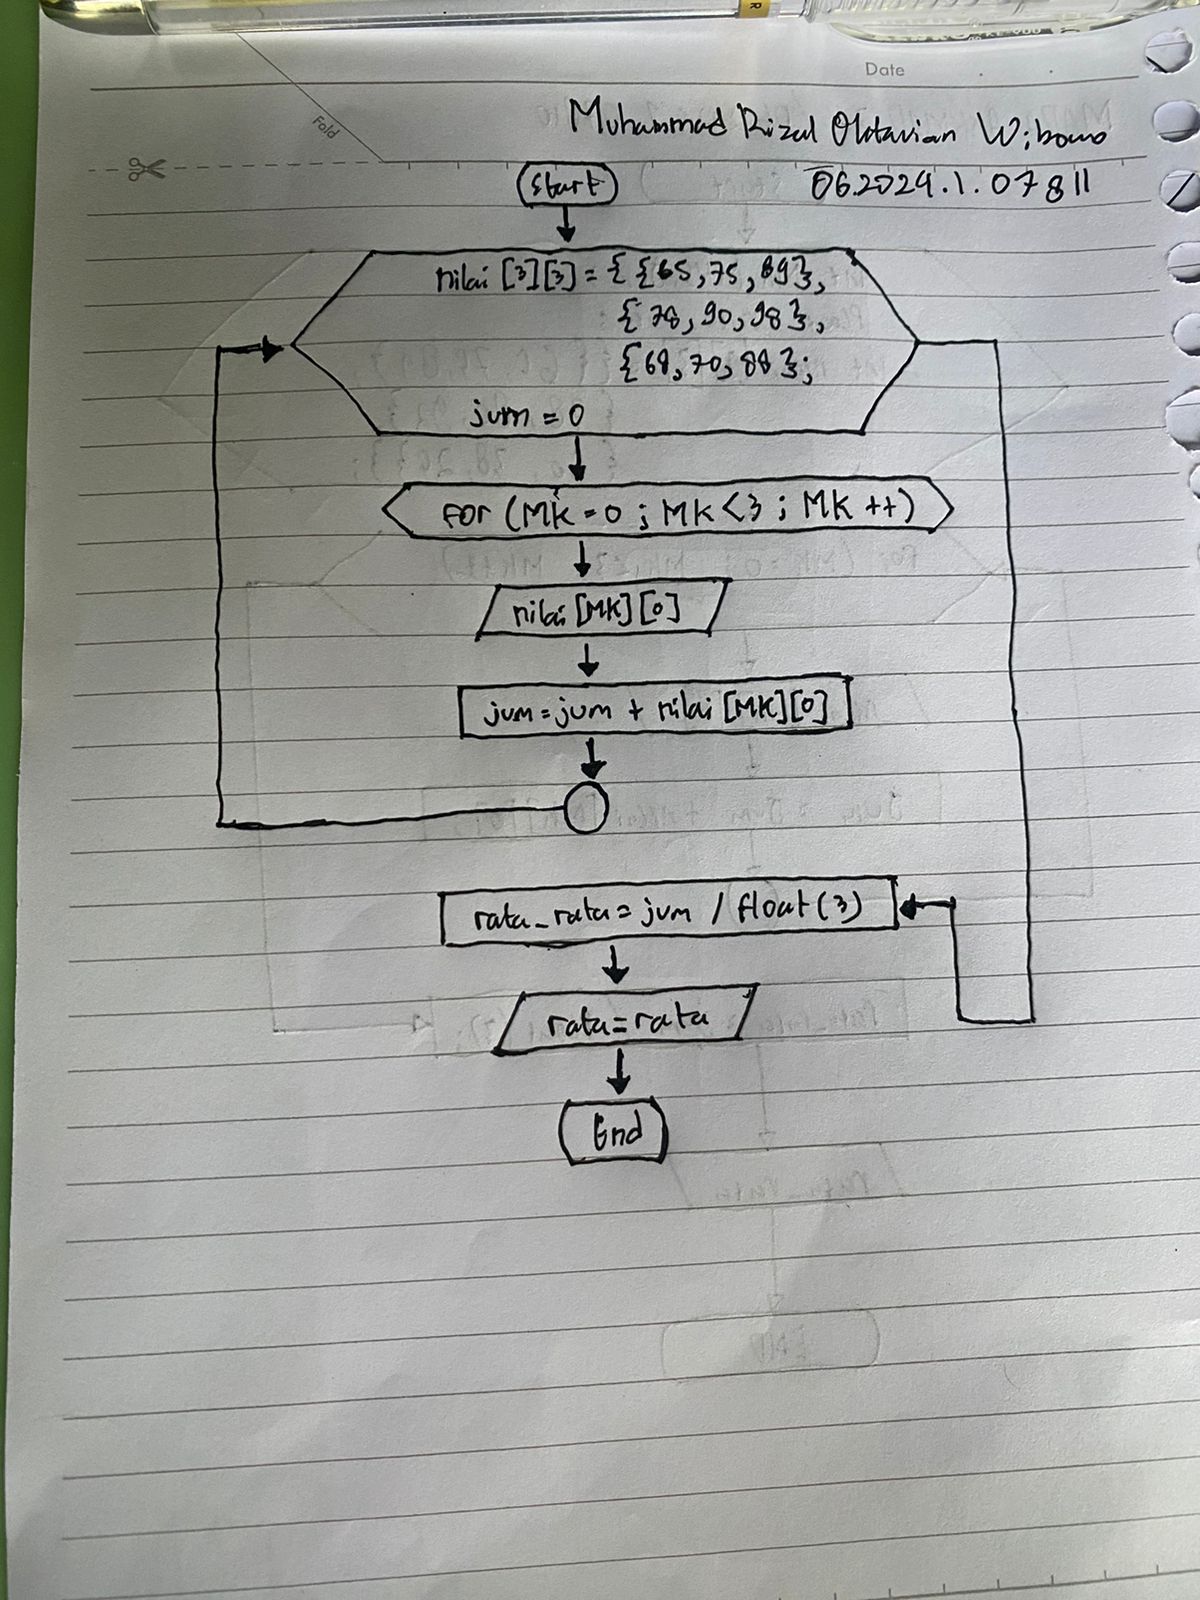 Date
Fold
Muhammad Rizal Oktavian Wibowo
06.2024.1.07811
Start
nilai [3][3] = { {65, 75, 89},
{ 78, 90, 98 },
{68, 70, 88 };
jum = 0
for (MK = 0 ; MK < 3 ; MK ++)
nilai [MK] [0]
jum = jum + nilai [MK][0]
rata_rata = jum / float (3)
rata = rata
End